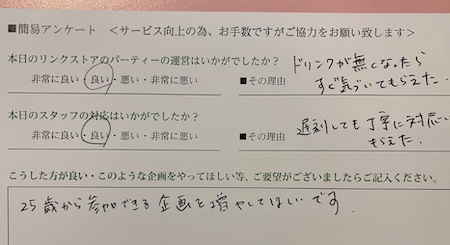 ■簡易アンケート ＜サービス向上の為、お手数ですがご協力をお願い致します＞
本日のリンクストアのパーティーの運営はいかがでしたか？
非常に良い・良い・悪い・非常に悪い ■その理由
ドリンクが無くなったら
すぐ気づいてもらえた.
本日のスタッフの対応はいかがでしたか？
非常に良い・良い・悪い・非常に悪い ■その理由
遅刻しても丁寧に対応い
もらえた.
こうした方が良い・このような企画をやってほしい等、ご要望がございましたらご記入ください。
25歳から参加できる企画を増やしてほしいです.